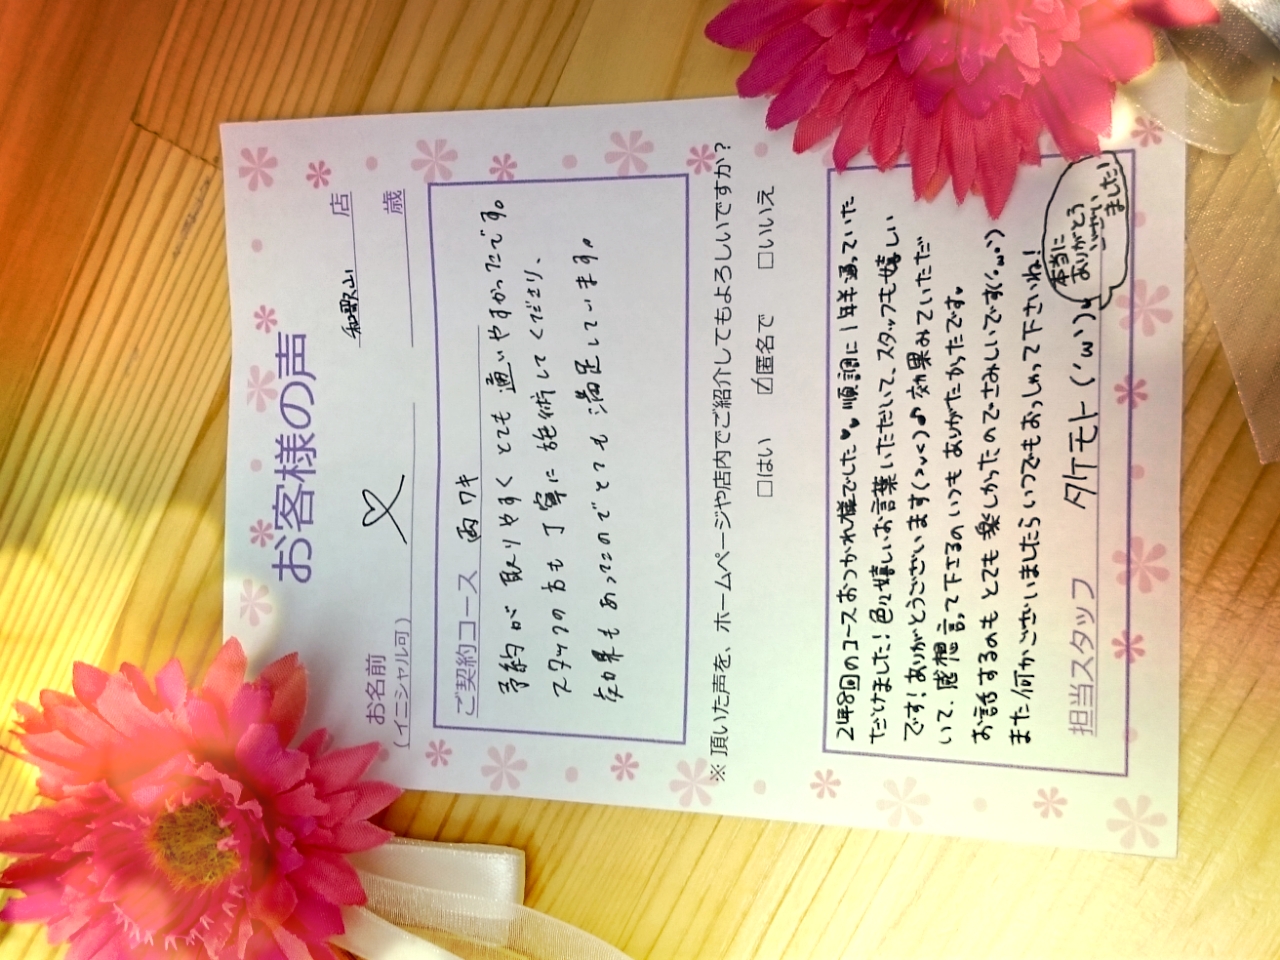 お客様の声
和歌山 店
お名前
(イニシャル可)
歳
ご契約コース 両ワキ
予約が取りやすくとても通いやすかったです。
スタッフの方も丁寧に施術してくださり、
効果もあったのでとても満足しています。
※頂いた声を、ホームページや店内でご紹介してもよろしいですか?
□はい ☑匿名で □いいえ
2年8回のコースおつかれ様でした♥♥順調に1年半通っていた
だけました!色々嬉しいお言葉いただいて、スタッフも嬉しい
です!ありがとうございます(>v<)♪効果みていただ
いて、感想言って下さるのいつもありがたかったです。
お話するのもとても楽しかったのでさみしいです(´・ω・`)
また何かございましたらいつでもおっしゃって下さいね!
担当スタッフ タケモト('ω')
本当に
ありがとう
ござい
ました!